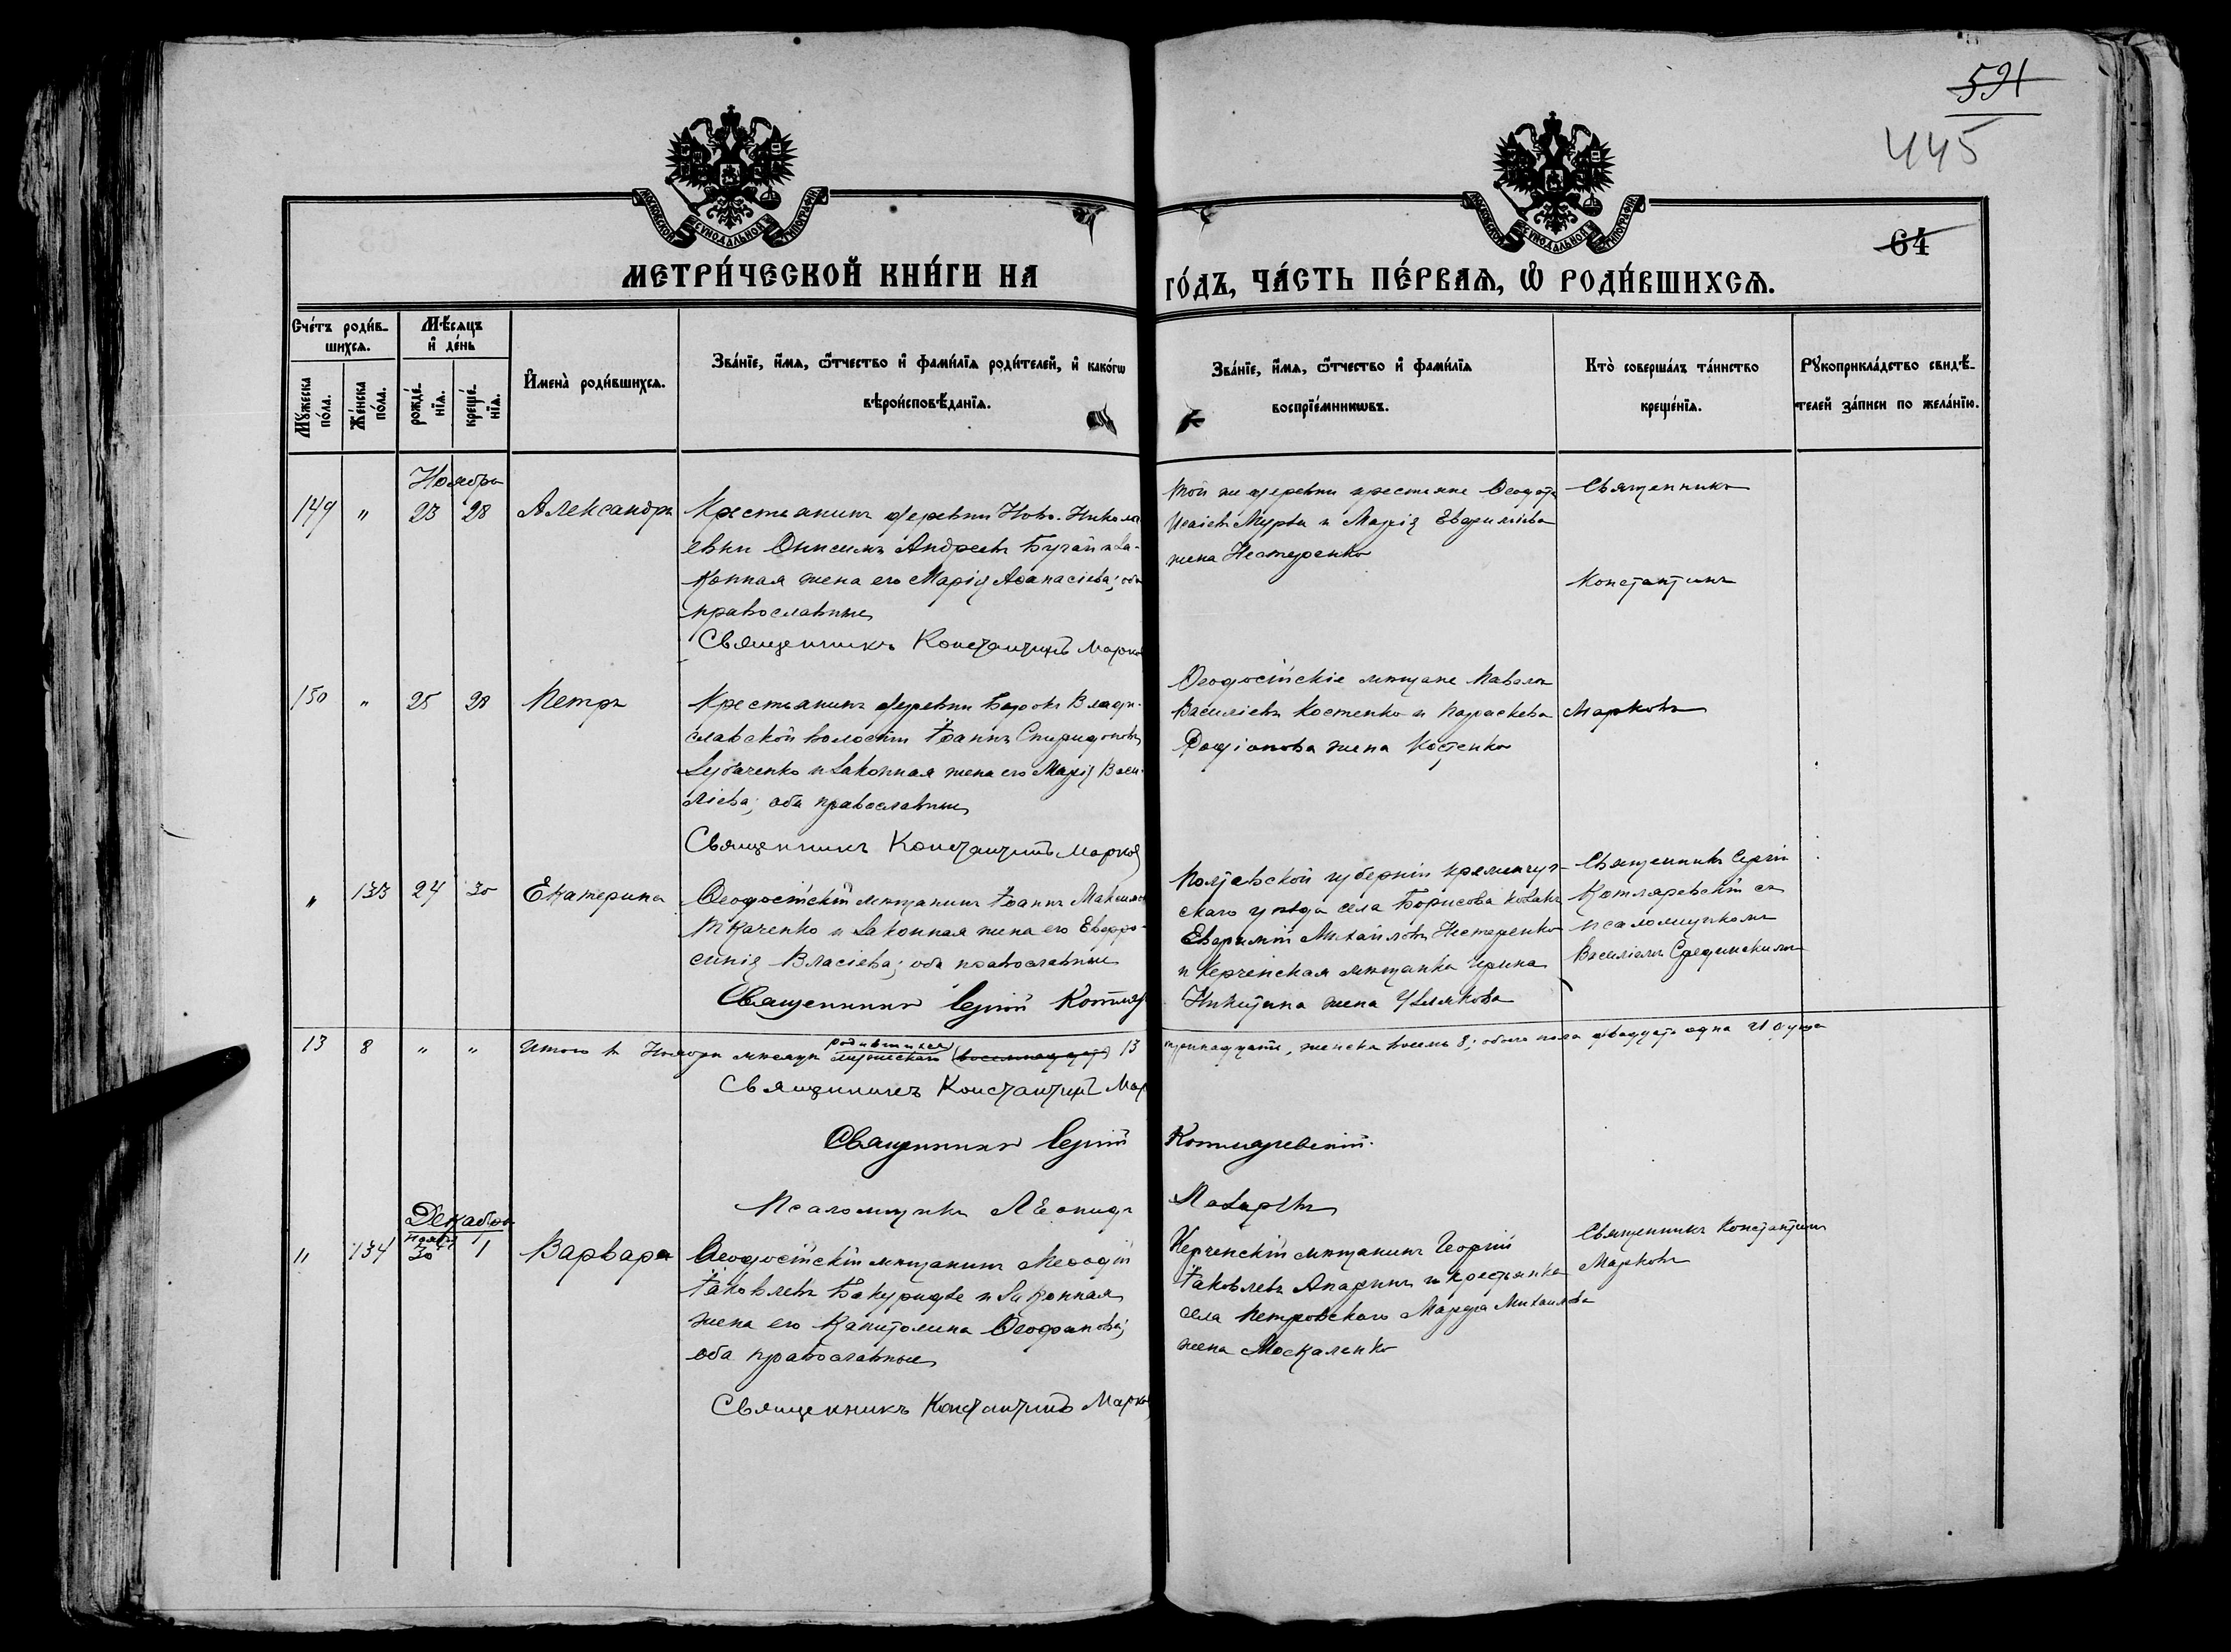 591
445
64
МОСКОВСКОЙ СѴНОДАЛЬНОЙ ТИПОГРАФІИ
МОСКОВСКОЙ СѴНОДАЛЬНОЙ ТИПОГРАФІИ
МЕТРИ́ЧЕСКОЙ КНИ́ГИ НА
ГО́ДЪ, ЧА́СТЬ ПЕ́РВАѦ, Ѡ҆ РОДИ́ВШИХСѦ.
Сче́тъ роди́в-
шихсѧ.
Мѣ́сѧцъ
и҆ де́нь
Мꙋ́жеска
по́ла.
Же́нска
по́ла.
рожде́-
нїѧ.
креще́-
нїѧ.
И҆мена̀ роди́вшихсѧ.
Зва́нїе, и҆́мѧ, ѻ҆́тчество и҆ фами́лїѧ роди́телей, и҆ како́гѡ
вѣроисповѣ́данїѧ.
Зва́нїе, и҆́мѧ, ѻ҆́тчество и҆ фами́лїѧ
воспрїе́мникѡвъ.
Кто̀ соверша́лъ та́инство
креще́нїѧ.
Рꙋкоприкла́дство свидѣ́-
телей за́писи по жела́нїю.
Ноября
149 " 23 28 Александръ
Крестьянинъ деревни Ново-Никола
евки Онисимъ Андреевъ Бугай и за-
конная жена его Марія Аѳанасіева; оба
православные
Священникъ Константинъ Марков
той же деревни крестьяне Ѳеодотъ
Исаіевъ Мурва и Марія Евфиміева
жена Нестеренко
Священникъ
Константинъ
150 " 25 28 Петръ
Крестьянинъ деревни Влади-
славской волости Іоаннъ Спиридоновъ
и законная жена его Марія Васи-
ліева; оба православные
Священникъ Константинъ Марков
Ѳеодосійскіе мѣщане Павелъ
Василіевъ Костенко и Параскева
Родіонова жена Костенко
Марковъ
" 133 24 30 Екатерина
Ѳеодосійскій мѣщанинъ Іоаннъ Максимов
Ткаченко и законная жена его Евфро-
синія Власіева; оба православные
Священникъ Сергій Котляр
Полтавской губерніи Кременчуг-
скаго уѣзда села Борисова козакъ
Евфимій Михайловъ Нестеренко
и Керченская мѣщанка Ирина
Никитина жена
Священникъ Сергій
Котляревскій съ
псаломщикомъ
Василіемъ Срединскимъ
13 8 " " Итого въ Ноябрѣ мѣсяцѣ родившихся мужескаго (восемнадцать) 13
тринадцать, женска восемь 8; обоего пола двадцать одна 21 душа
Священникъ Константинъ Мар
Священникъ Сергій Котляревскій.
Псаломщикъ Леонидъ Лазаревъ
Декабря
" 134 Ноября 30 1 Варвара
Ѳеодосійскій мѣщанинъ Меѳодій
Іаковлевъ Бакуридзе и законная
жена его Капитолина Ѳеофанова;
оба православные
Священникъ Константинъ Марков
Керченскій мѣщанинъ Георгій
Іаковлевъ Апаринъ и крестьянка
села Петровскаго Марфа Михаилова
жена Москаленко
Священникъ Константинъ
Марковъ